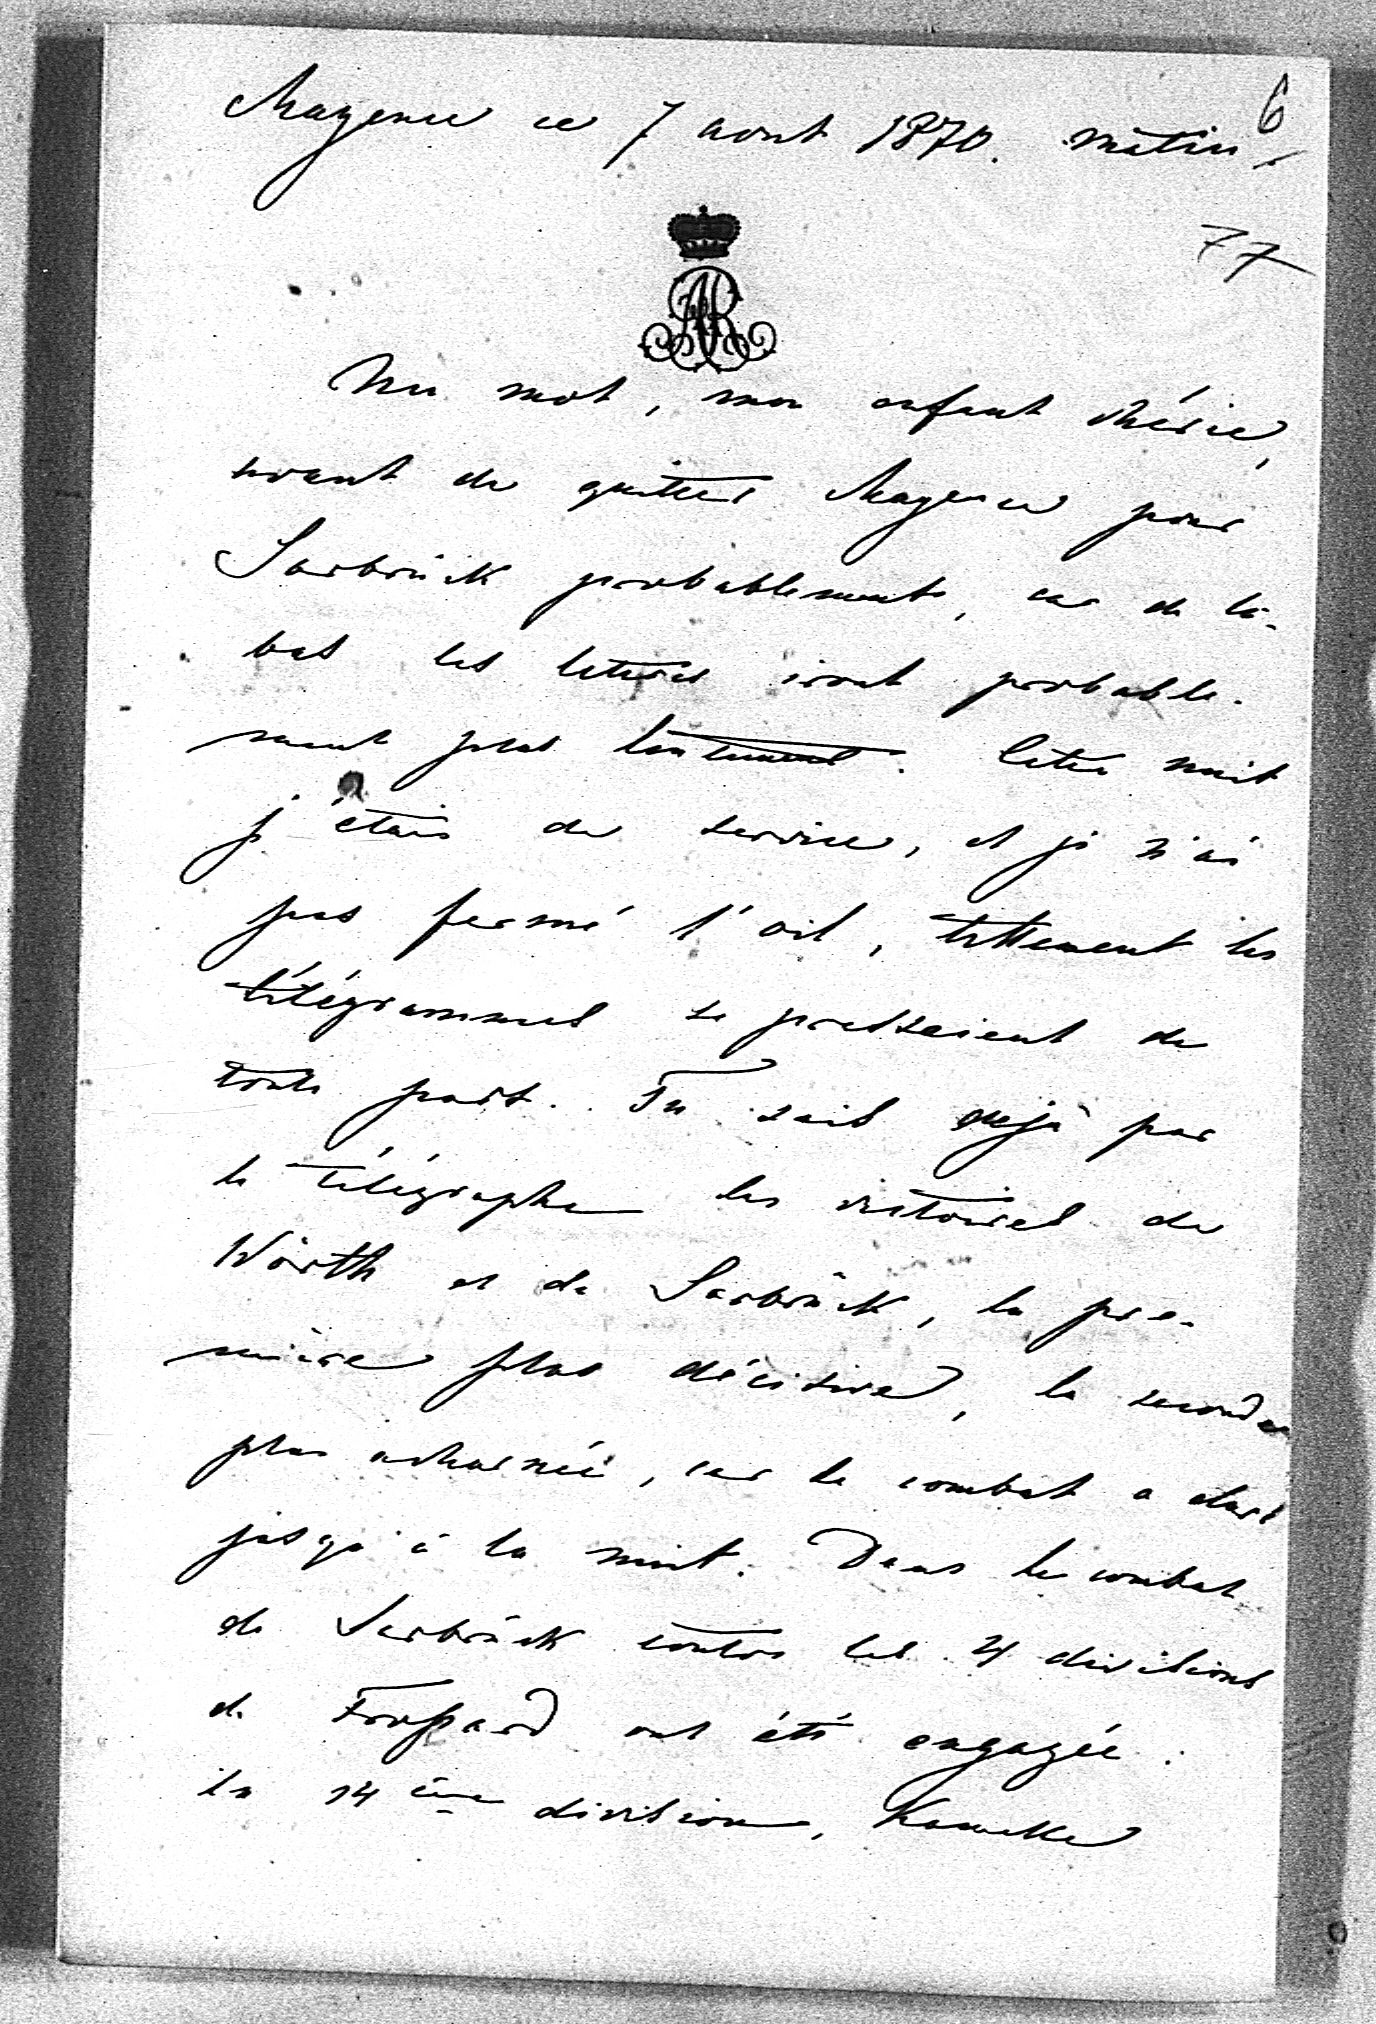 Mayence ce 7 aout 1870. matin
6
77
AR
Un mot, mon enfant chérie,
avant de quitter Mayence pour
Sarbrück probablement, car de là-
bas les lettres iront probable-
ment plus lentement. Cette nuit
j'étais de service, et je n'ai
pas fermé l'oeil, tellement les
télégrammes se pressaient de
toute part. Tu sais déjà par
le télégraphe les victoires de
Wörth et de Sarbrück, la pre-
mière plus décisive, la seconde
plus acharnée, car le combat a duré
jusqu'à la nuit. Dans le combat
de Sarbrück contre les 4 divisions
de Frossard ont été engagée:
la 14ème division, Kameke